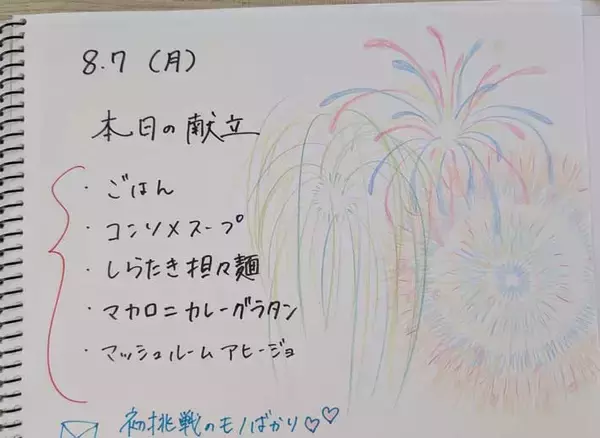 8.7（月）
本日の献立
・ごはん
・コンソメスープ
・しらたき担々麺
・マカロニカレーグラタン
・マッシュルームアヒージョ
初挑戦のモノばかり♡♡